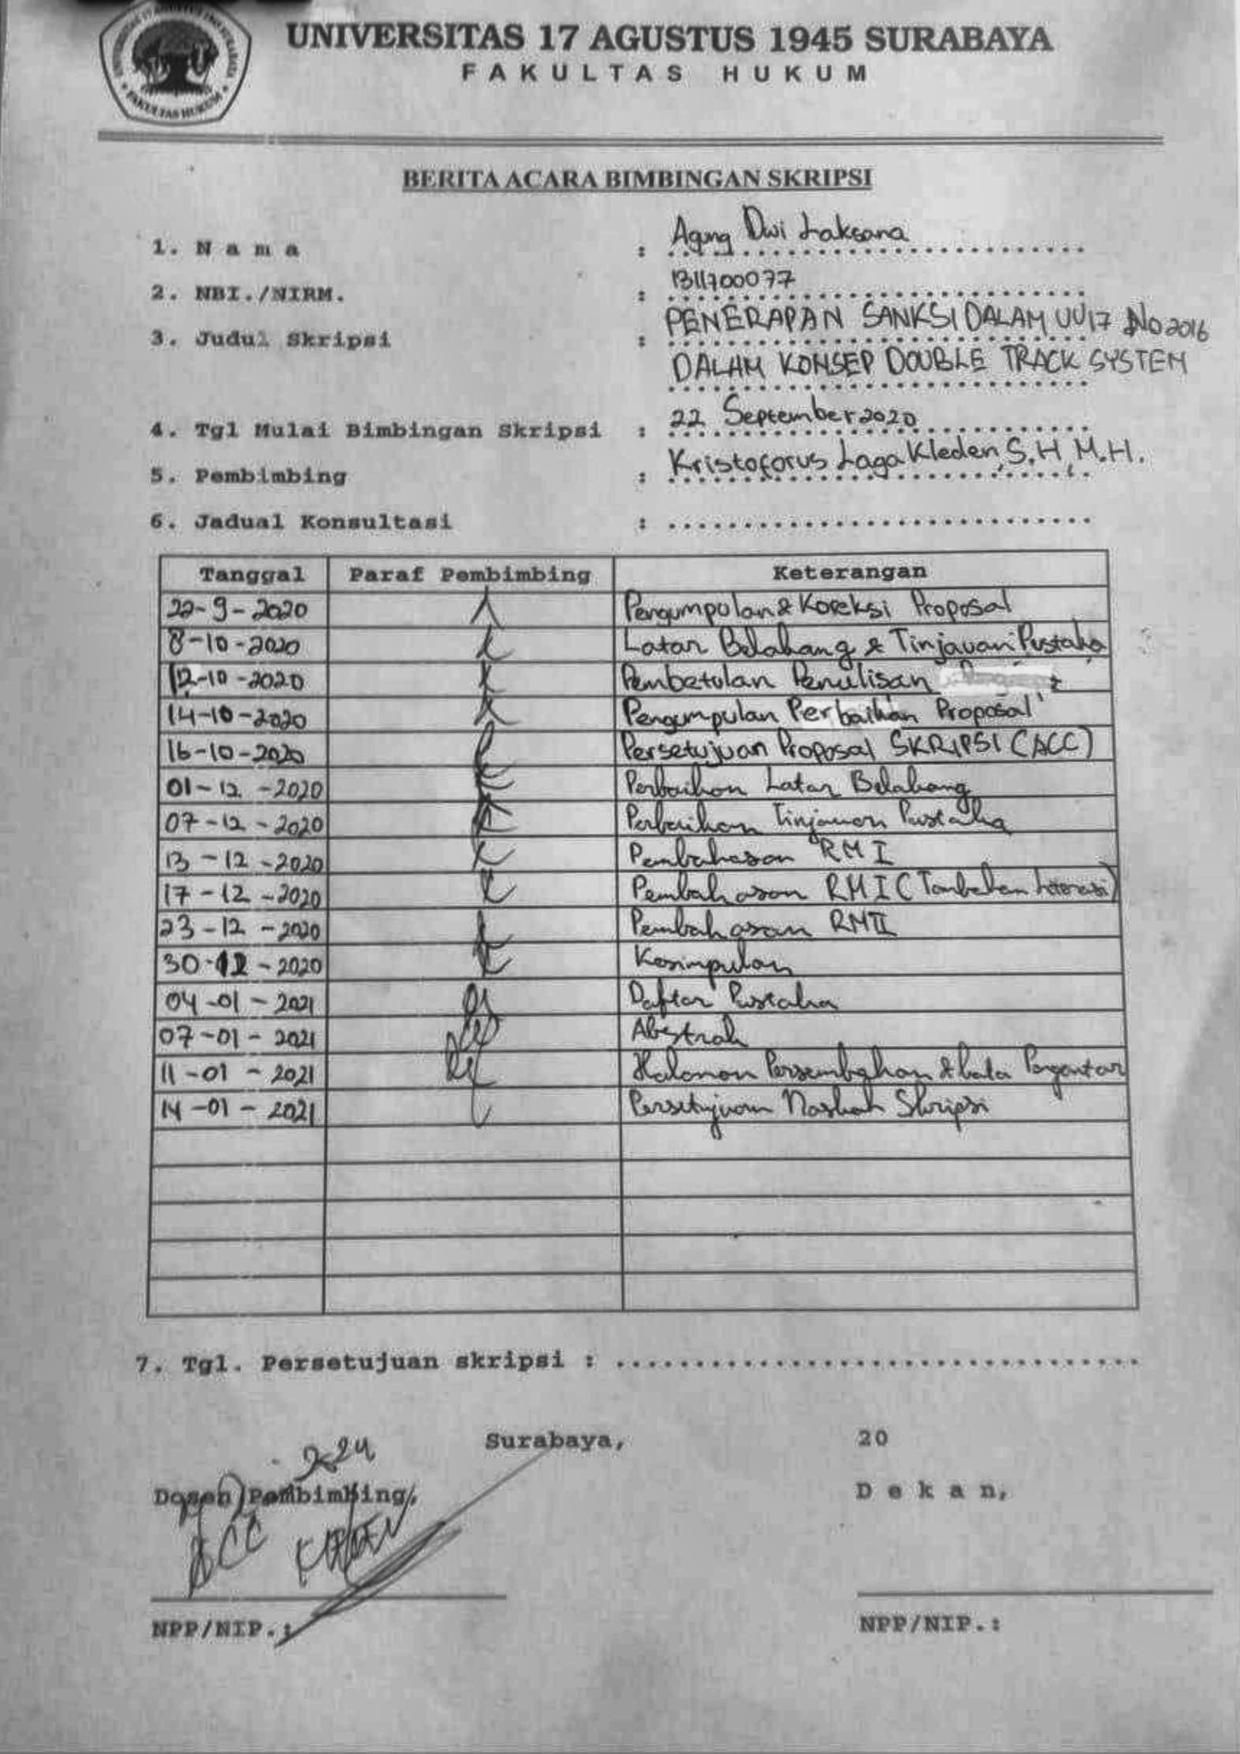 UNIVERSITAS 17 AGUSTUS 1945 SURABAYA
FAKULTAS HUKUM
FAKULTAS HUKUM
BERITA ACARA BIMBINGAN SKRIPSI
1. Nama : Agung Dwi Laksana
2. NBI./NIRM. : 1311700077
3. Judul Skripsi : PENERAPAN SANKSI DALAM UU 17 No 2016
DALAM KONSEP DOUBLE TRACK SYSTEM
4. Tgl Mulai Bimbingan Skripsi : 22 September 2020
5. Pembimbing : Kristoforus Laga Kleden, S.H, M.H.
6. Jadual Konsultasi :
Tanggal Paraf Pembimbing Keterangan
22-9-2020 Pengumpulan & Koreksi Proposal
8-10-2020 Latar Belakang & Tinjauan Pustaka
12-10-2020 Pembetulan Penulisan
14-10-2020 Pengumpulan Perbaikan Proposal
16-10-2020 Persetujuan Proposal SKRIPSI (ACC)
01-12-2020 Perbaikan Latar Belakang
07-12-2020 Perbaikan Tinjauan Pustaka
13-12-2020 Pembahasan RM I
17-12-2020 Pembahasan RM I (Tambahan
23-12-2020 Pembahasan RM II
30-12-2020 Kesimpulan
04-01-2021 Daftar Pustaka
07-01-2021 Abstrak
11-01-2021 Halaman Persembahan & kata Pengantar
14-01-2021 Persetujuan Naskah Skripsi
7. Tgl. Persetujuan skripsi :
Surabaya, 20
Dosen Pembimbing, Dekan,
ACC
NPP/NIP.: NPP/NIP.: